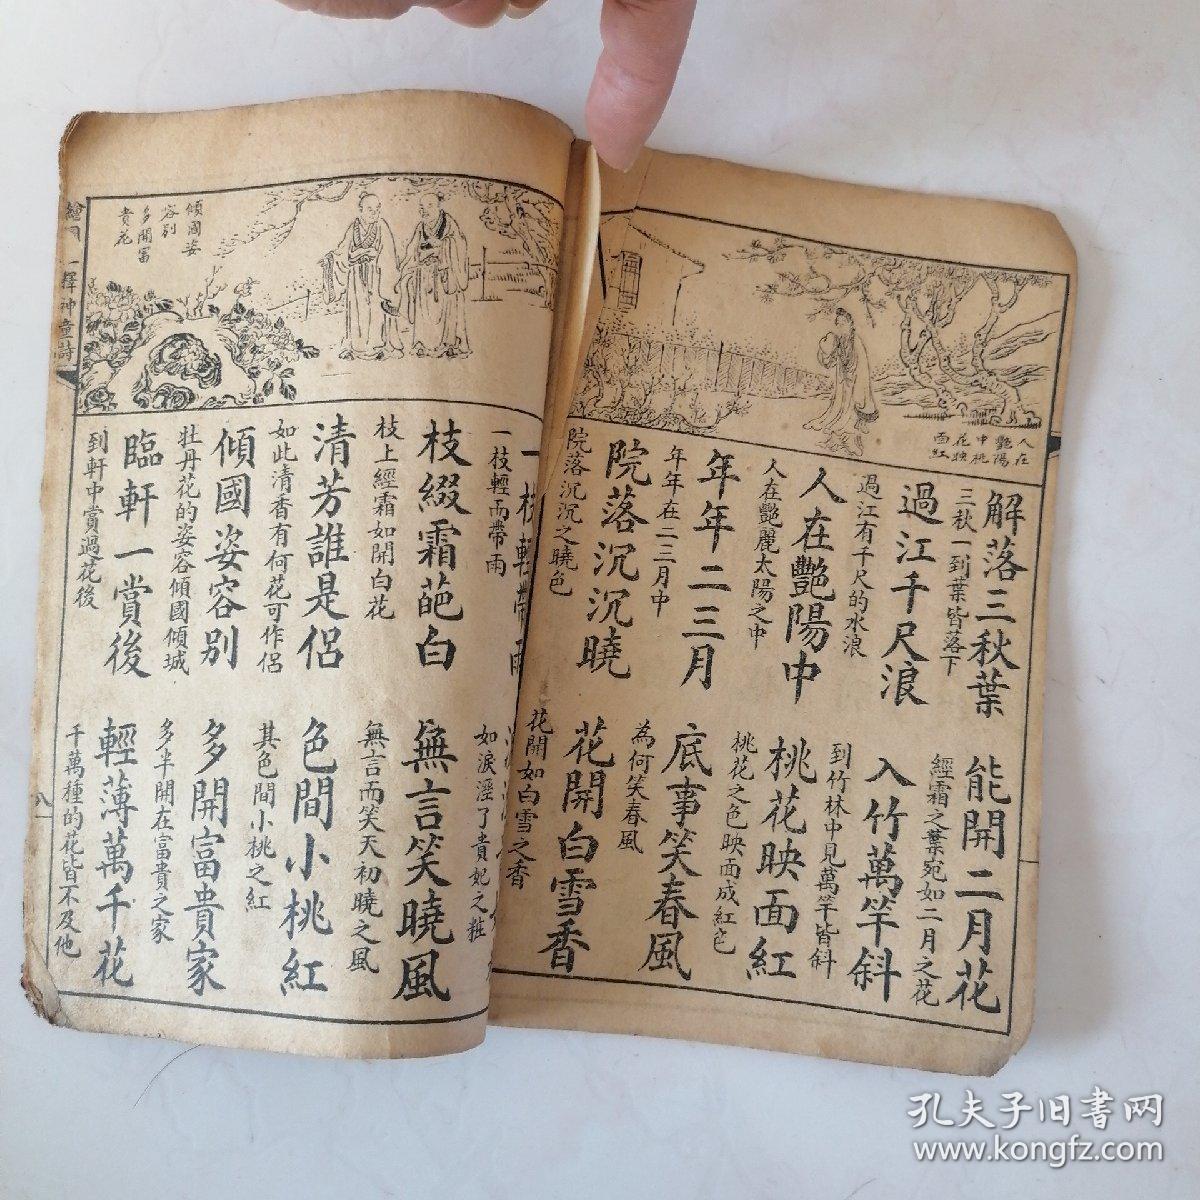 人在
艷陽
中桃
花映
面紅
解落三秋葉
三秋一到葉皆落下
過江千尺浪
過江有千尺的水浪
人在艷陽中
人在艷麗太陽之中
年年二三月
年年在二三月中
院落沉沉曉
院落沉沉之曉色
能開二月花
經霜之葉宛如二月之花
入竹萬竿斜
到竹林中見萬竿皆斜
桃花映面紅
桃花之色映面成紅色
底事笑春風
為何笑春風
花開白雪香
花開如白雪之香
傾國姿
容別
多開富
貴花
一枝輕帶雨
一枝輕而帶雨
枝綴霜葩白
枝上經霜如開白花
清芳誰是侶
如此清香有何花可作侶
傾國姿容別
牡丹花的姿容傾國傾城
臨軒一賞後
到軒中賞過花後
如淚溼了貴妃之粧
無言笑曉風
無言而笑天初曉之風
色間小桃紅
其色間小桃之紅
多開富貴家
多半開在富貴之家
輕薄萬千花
千萬種的花皆不及他
釋神童詩
八
孔夫子旧书网
www.kongfz.com